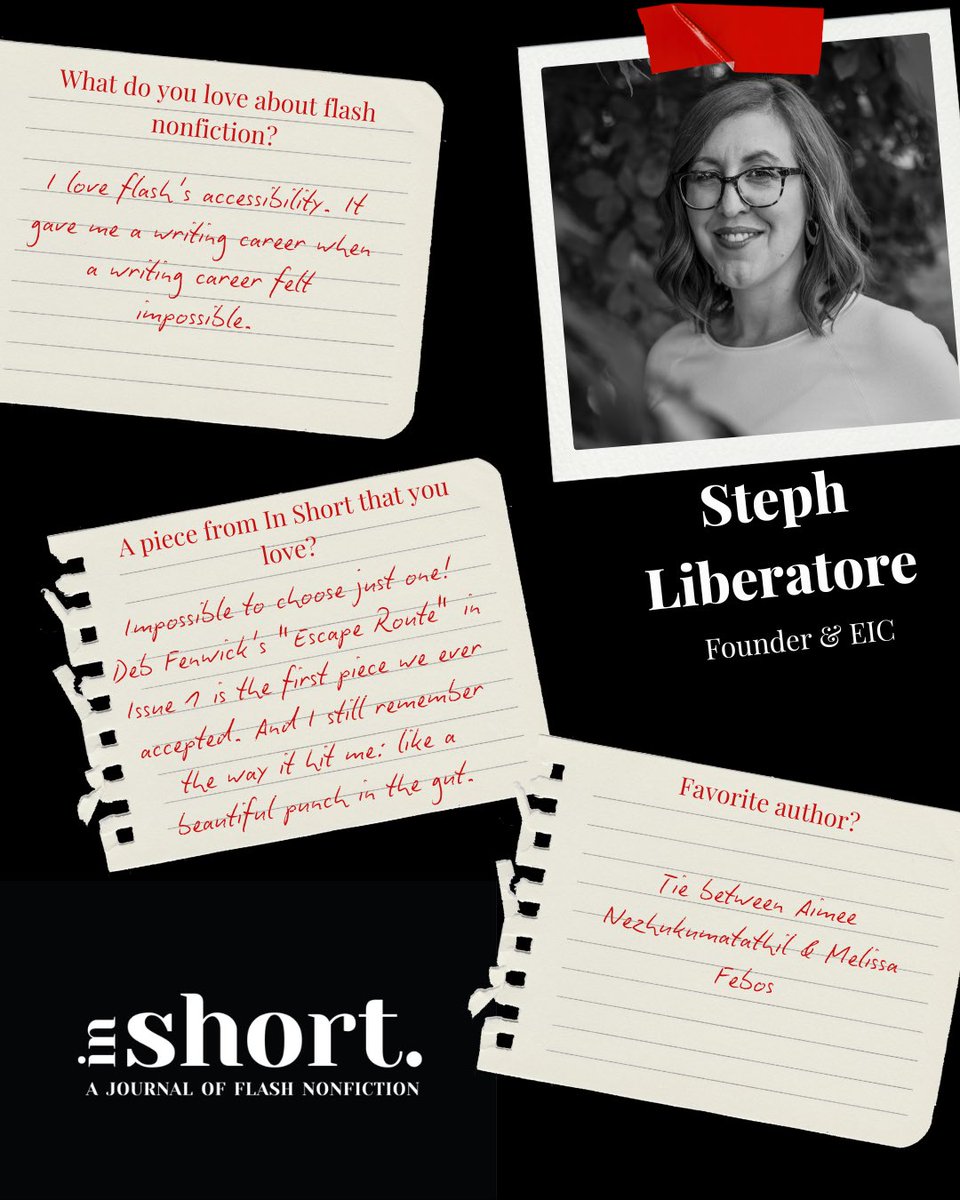 What do you love about flash
nonfiction?
I love flash's accessibility. It
gave me a writing career when
a writing career felt
impossible.
Steph
Liberatore
Founder & EIC
A piece from In Short that you
love?
Impossible to choose just one!
Deb Fenwick's "Escape Route" in
Issue 1 is the first piece we ever
accepted. And I still remember
the way it hit me: like a
beautiful punch in the gut.
Favorite author?
Tie between Aimee
Nezhukumatathil & Melissa
Febos
in short.
A JOURNAL OF FLASH NONFICTION